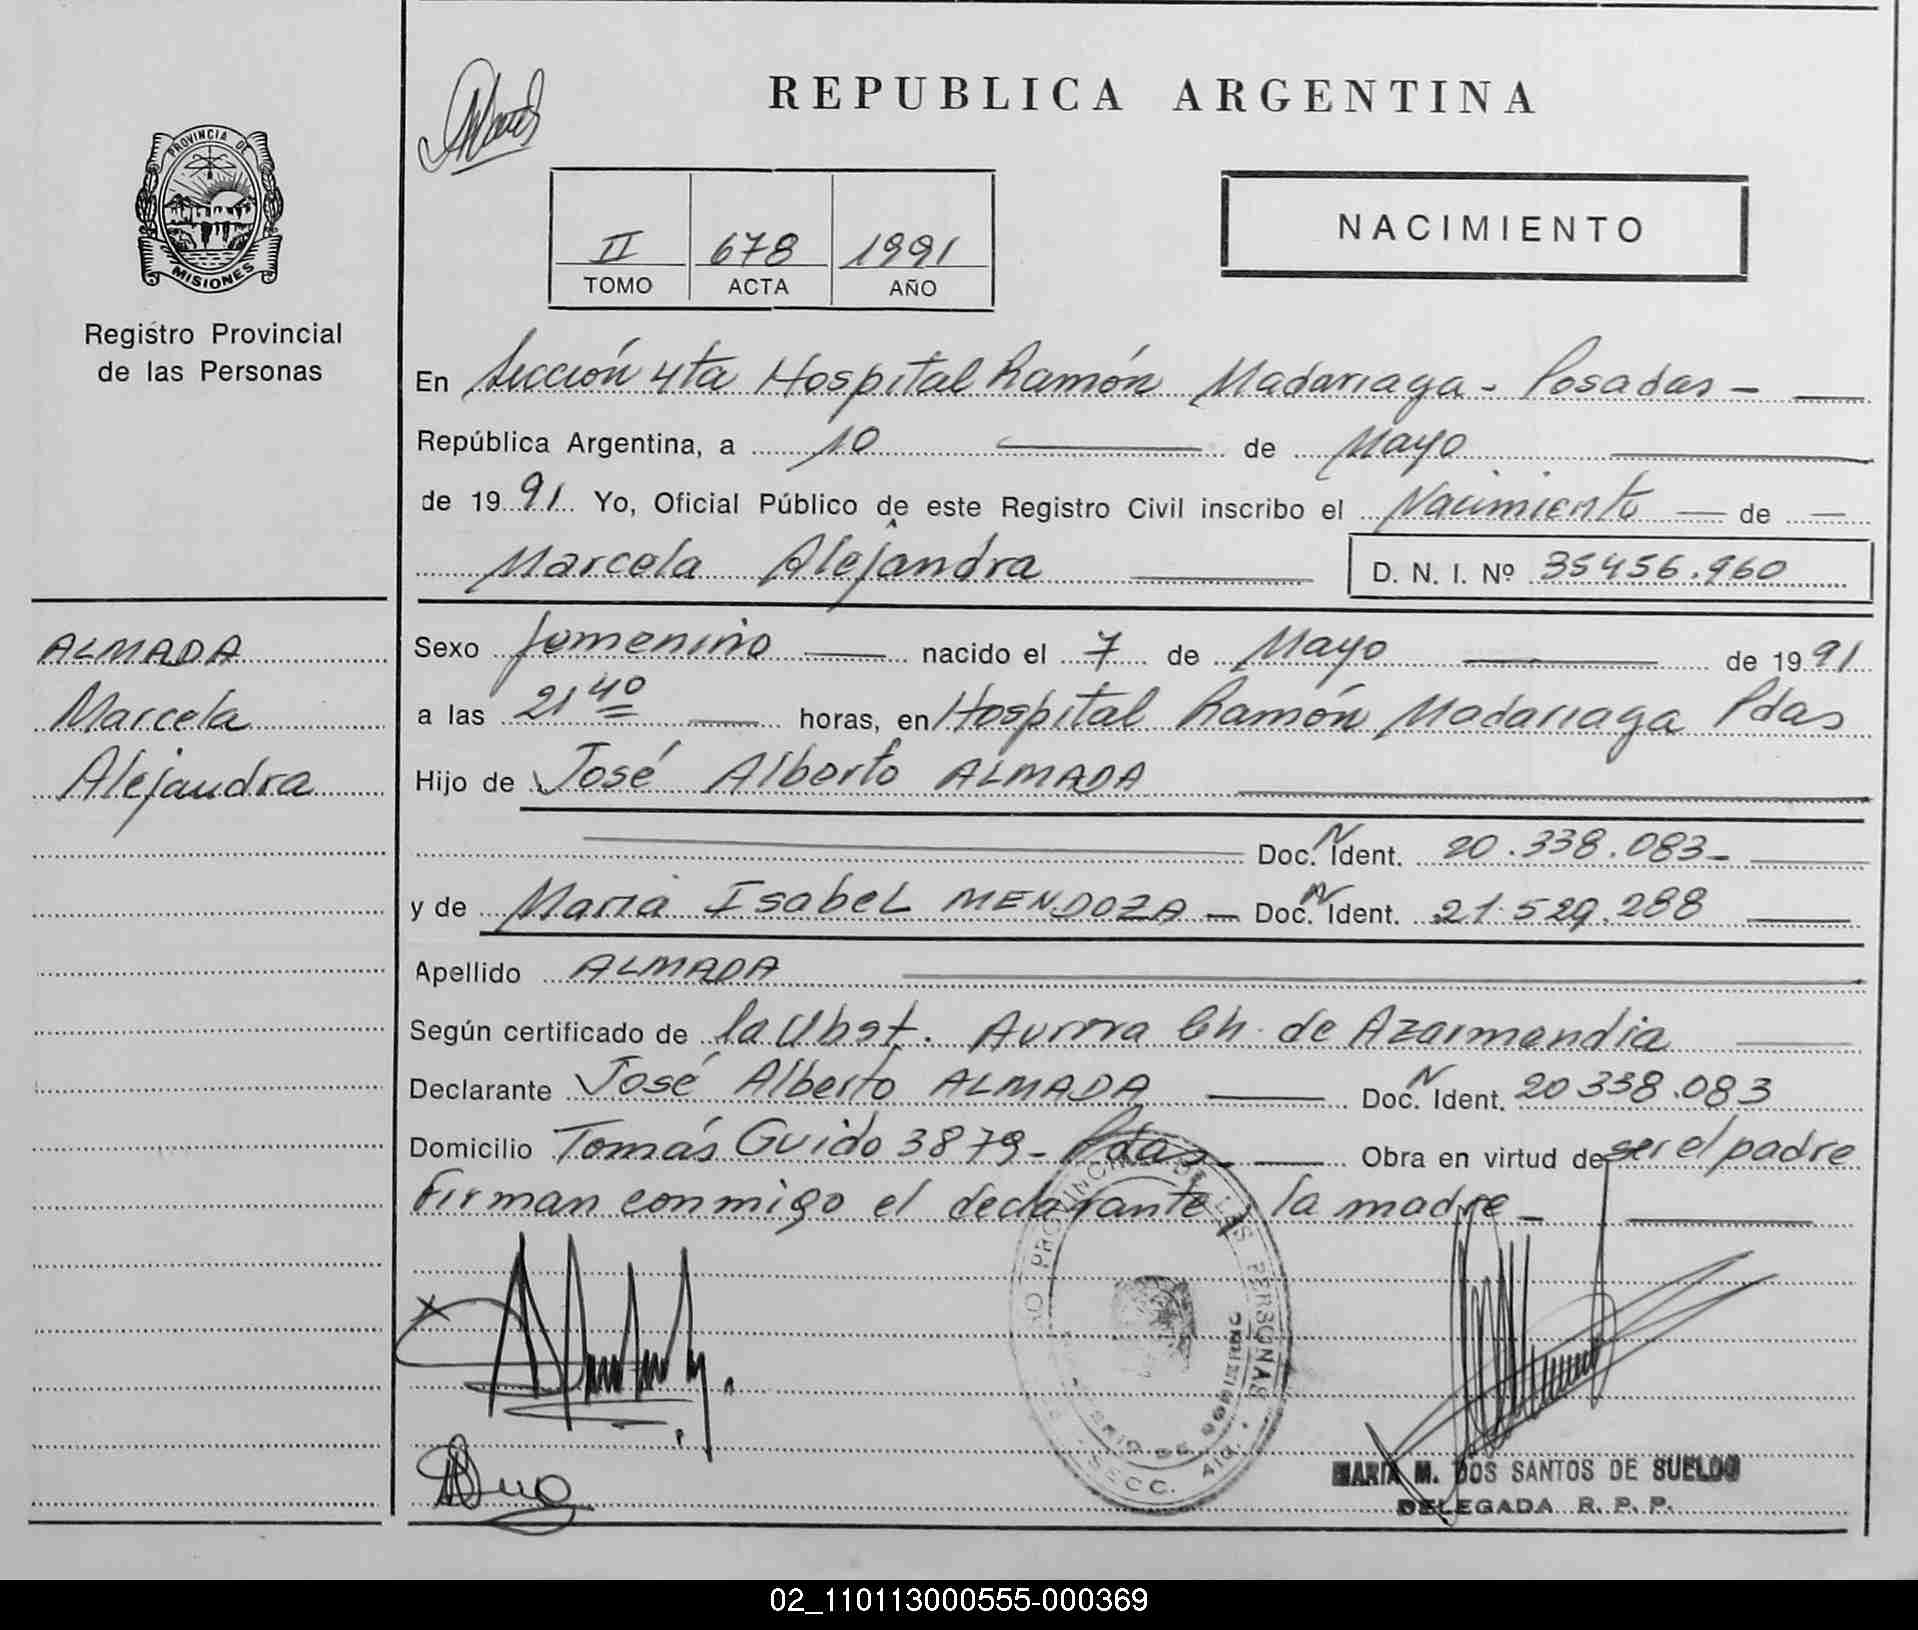 REPUBLICA ARGENTINA
PROVINCIA DE
MISIONES
Registro Provincial
de las Personas
II 678 1991
TOMO ACTA AÑO
NACIMIENTO
En Sección 4ta Hospital Ramón Madariaga - Posadas -
República Argentina, a 10 de Mayo
de 1991 Yo, Oficial Público de este Registro Civil inscribo el Nacimiento de
Marcela Alejandra D. N. I. Nº 35456.960
ALMADA
Marcela
Alejandra
Sexo femenino nacido el 7 de Mayo de 1991
a las 21 40 horas, en Hospital Ramón Madariaga Pdas
Hijo de José Alberto ALMADA
Doc. N Ident. 20.338.083-
y de Maria Isabel MENDOZA - Doc. N Ident. 21.529.288
Apellido ALMADA
Según certificado de la Obst. Aurora Ch. de Azarmendia
Declarante José Alberto ALMADA Doc. N Ident. 20338.083
Domicilio Tomás Guido 3879- Pdas - Obra en virtud de ser el padre
Firman conmigo el declarante y la madre -
PROVINCIAL DE LAS PERSONAS
SECC. 4ta.
MARIA M. DOS SANTOS DE SUELDO
DELEGADA R. P. P.
02_110113000555-000369